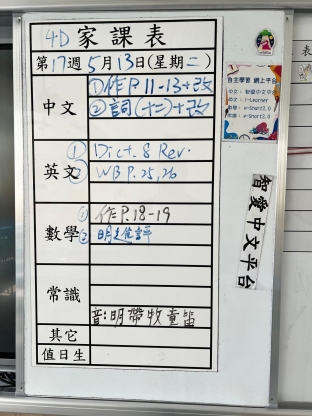 4D 家課表
第17週5月13日(星期二)
中文
①作P.11-13+改
②詞(十二)+改
英文
① Dict. 8 Rev.
② WB P.25,26
數學
① 作P.18-19
② 明進評
常識
音:明帶牧童笛
其它
值日生
自主學習 網上平台
智愛中文平台